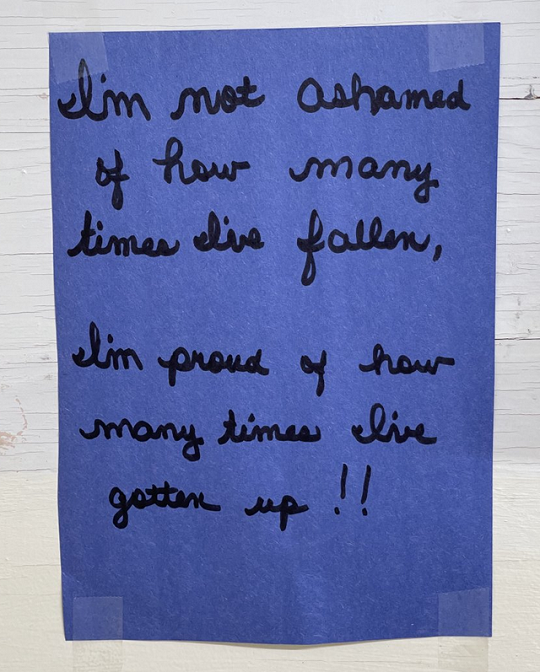 I'm not ashamed
of how many
times I've fallen,
I'm proud of how
many times I've
gotten up !!